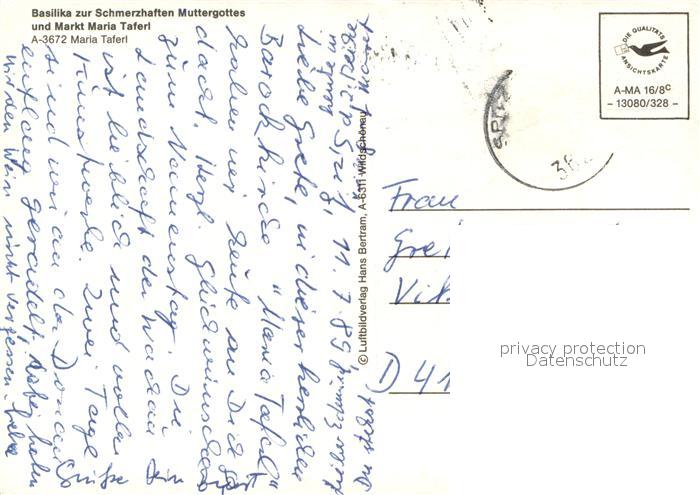 Basilika zur Schmerzhaften Muttergottes
und Markt Maria Taferl
A-3672 Maria Taferl
DIE QUALITÄTS
ANSICHTSKARTE
A-MA 16/8c
– 13080/328 –
SPITZ
36
11.7.89
Liebe Grete, in dieser herrlichen
Barockkirche "Maria Taferl"
haben wir heute an Dich ge-
dacht. Herzl. Glückwünsche
zum Namenstag. Die
Landschaft der Wachau
ist lieblich und voller
Kunstwerke. Zwei Tage
sind wir an der Donau
entlang geradelt, haben
den Wein nicht vergessen. Liebe
Grüße
© Luftbildverlag Hans Bertram, A-6311 Wildschönau
Frau
Gre
Vik
D 41
privacy protection
Datenschutz